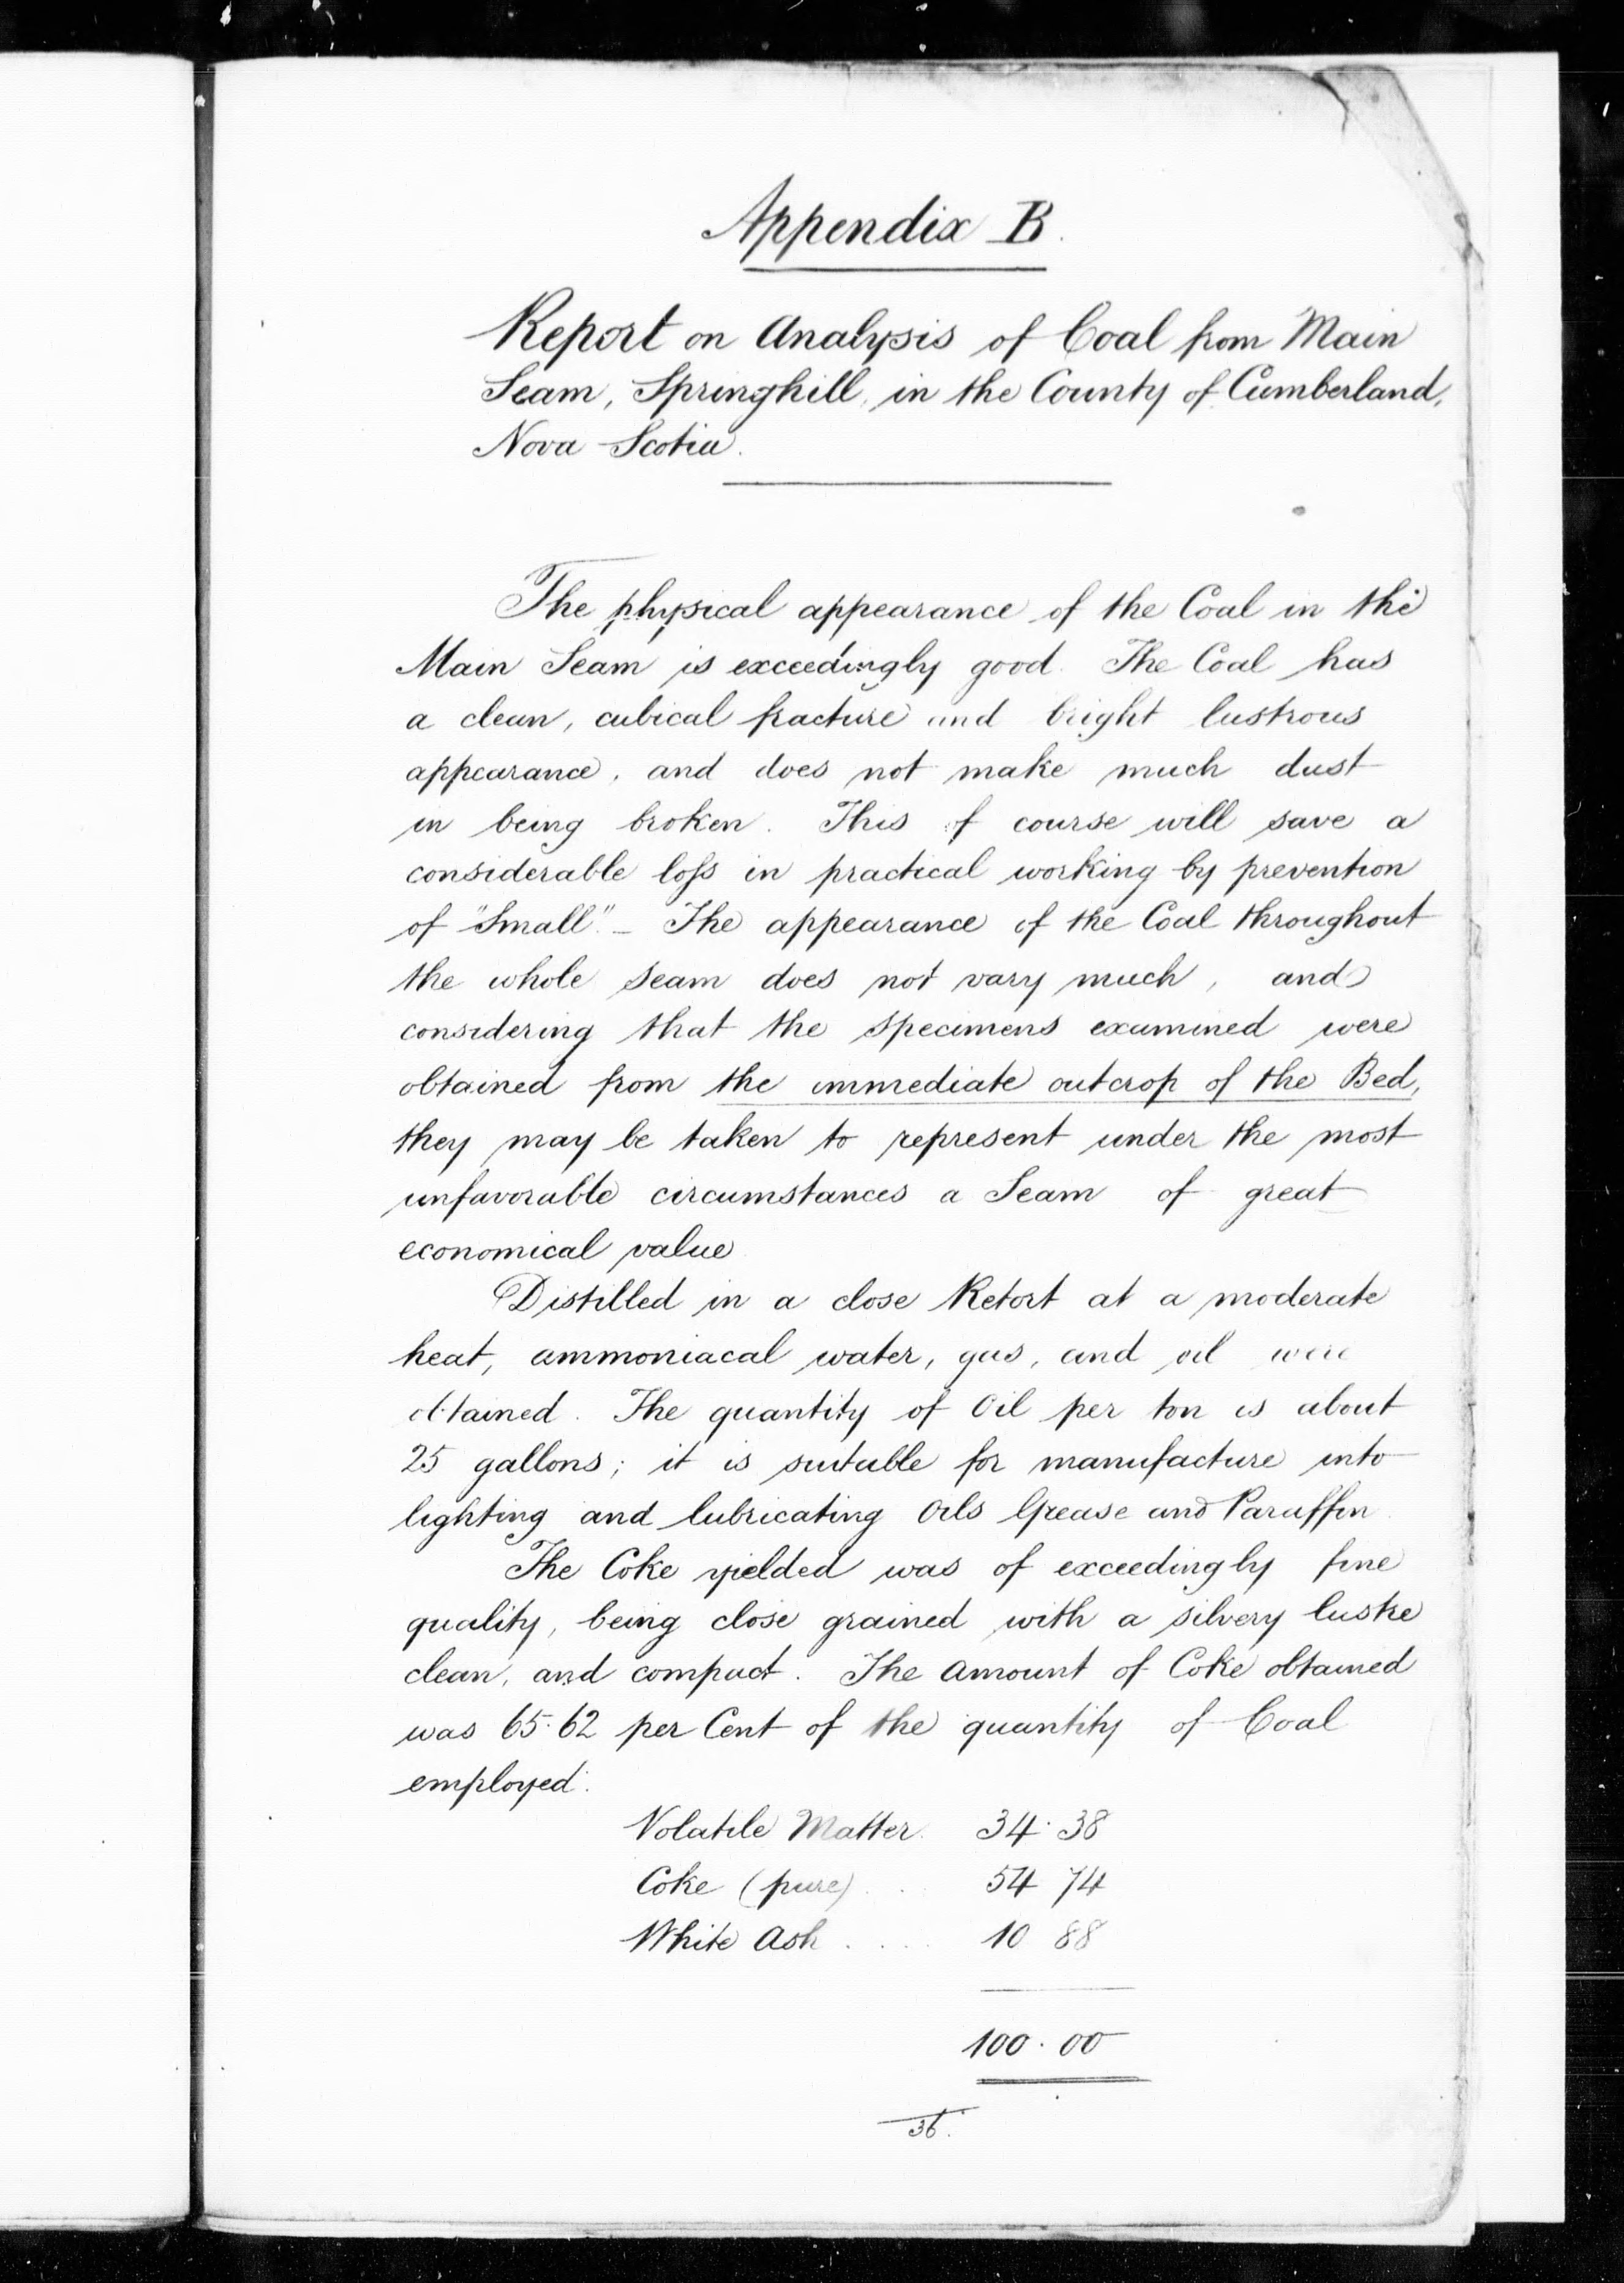 Appendix B.
Report on Analysis of Coal from Main
Seam, Springhill, in the County of Cumberland,
Nova Scotia.
The physical appearance of the Coal in the
Main Seam is exceedingly good. The Coal has
a clean, cubical fracture and bright lustrous
appearance, and does not make much dust
in being broken. This of course will save a
considerable loss in practical working by prevention
of "Small". - The appearance of the Coal throughout
the whole seam does not vary much, and
considering that the specimens examined were
obtained from the immediate outcrop of the Bed,
they may be taken to represent under the most
unfavorable circumstances a Seam of great
economical value
Distilled in a close Retort at a moderate
heat, ammoniacal water, gas, and oil were
obtained. The quantity of Oil per ton is about
25 gallons; it is suitable for manufacture into
lighting and lubricating Oils Grease and Paraffin.
The Coke yielded was of exceedingly fine
quality, being close grained with a silvery lustre
clean, and compact. The amount of Coke obtained
was 65.62 per Cent of the quantity of Coal
employed.
Volatile Matter. 34.38
Coke (pure) . . 54 74
White Ash . . . . 10 88
100.00
36.